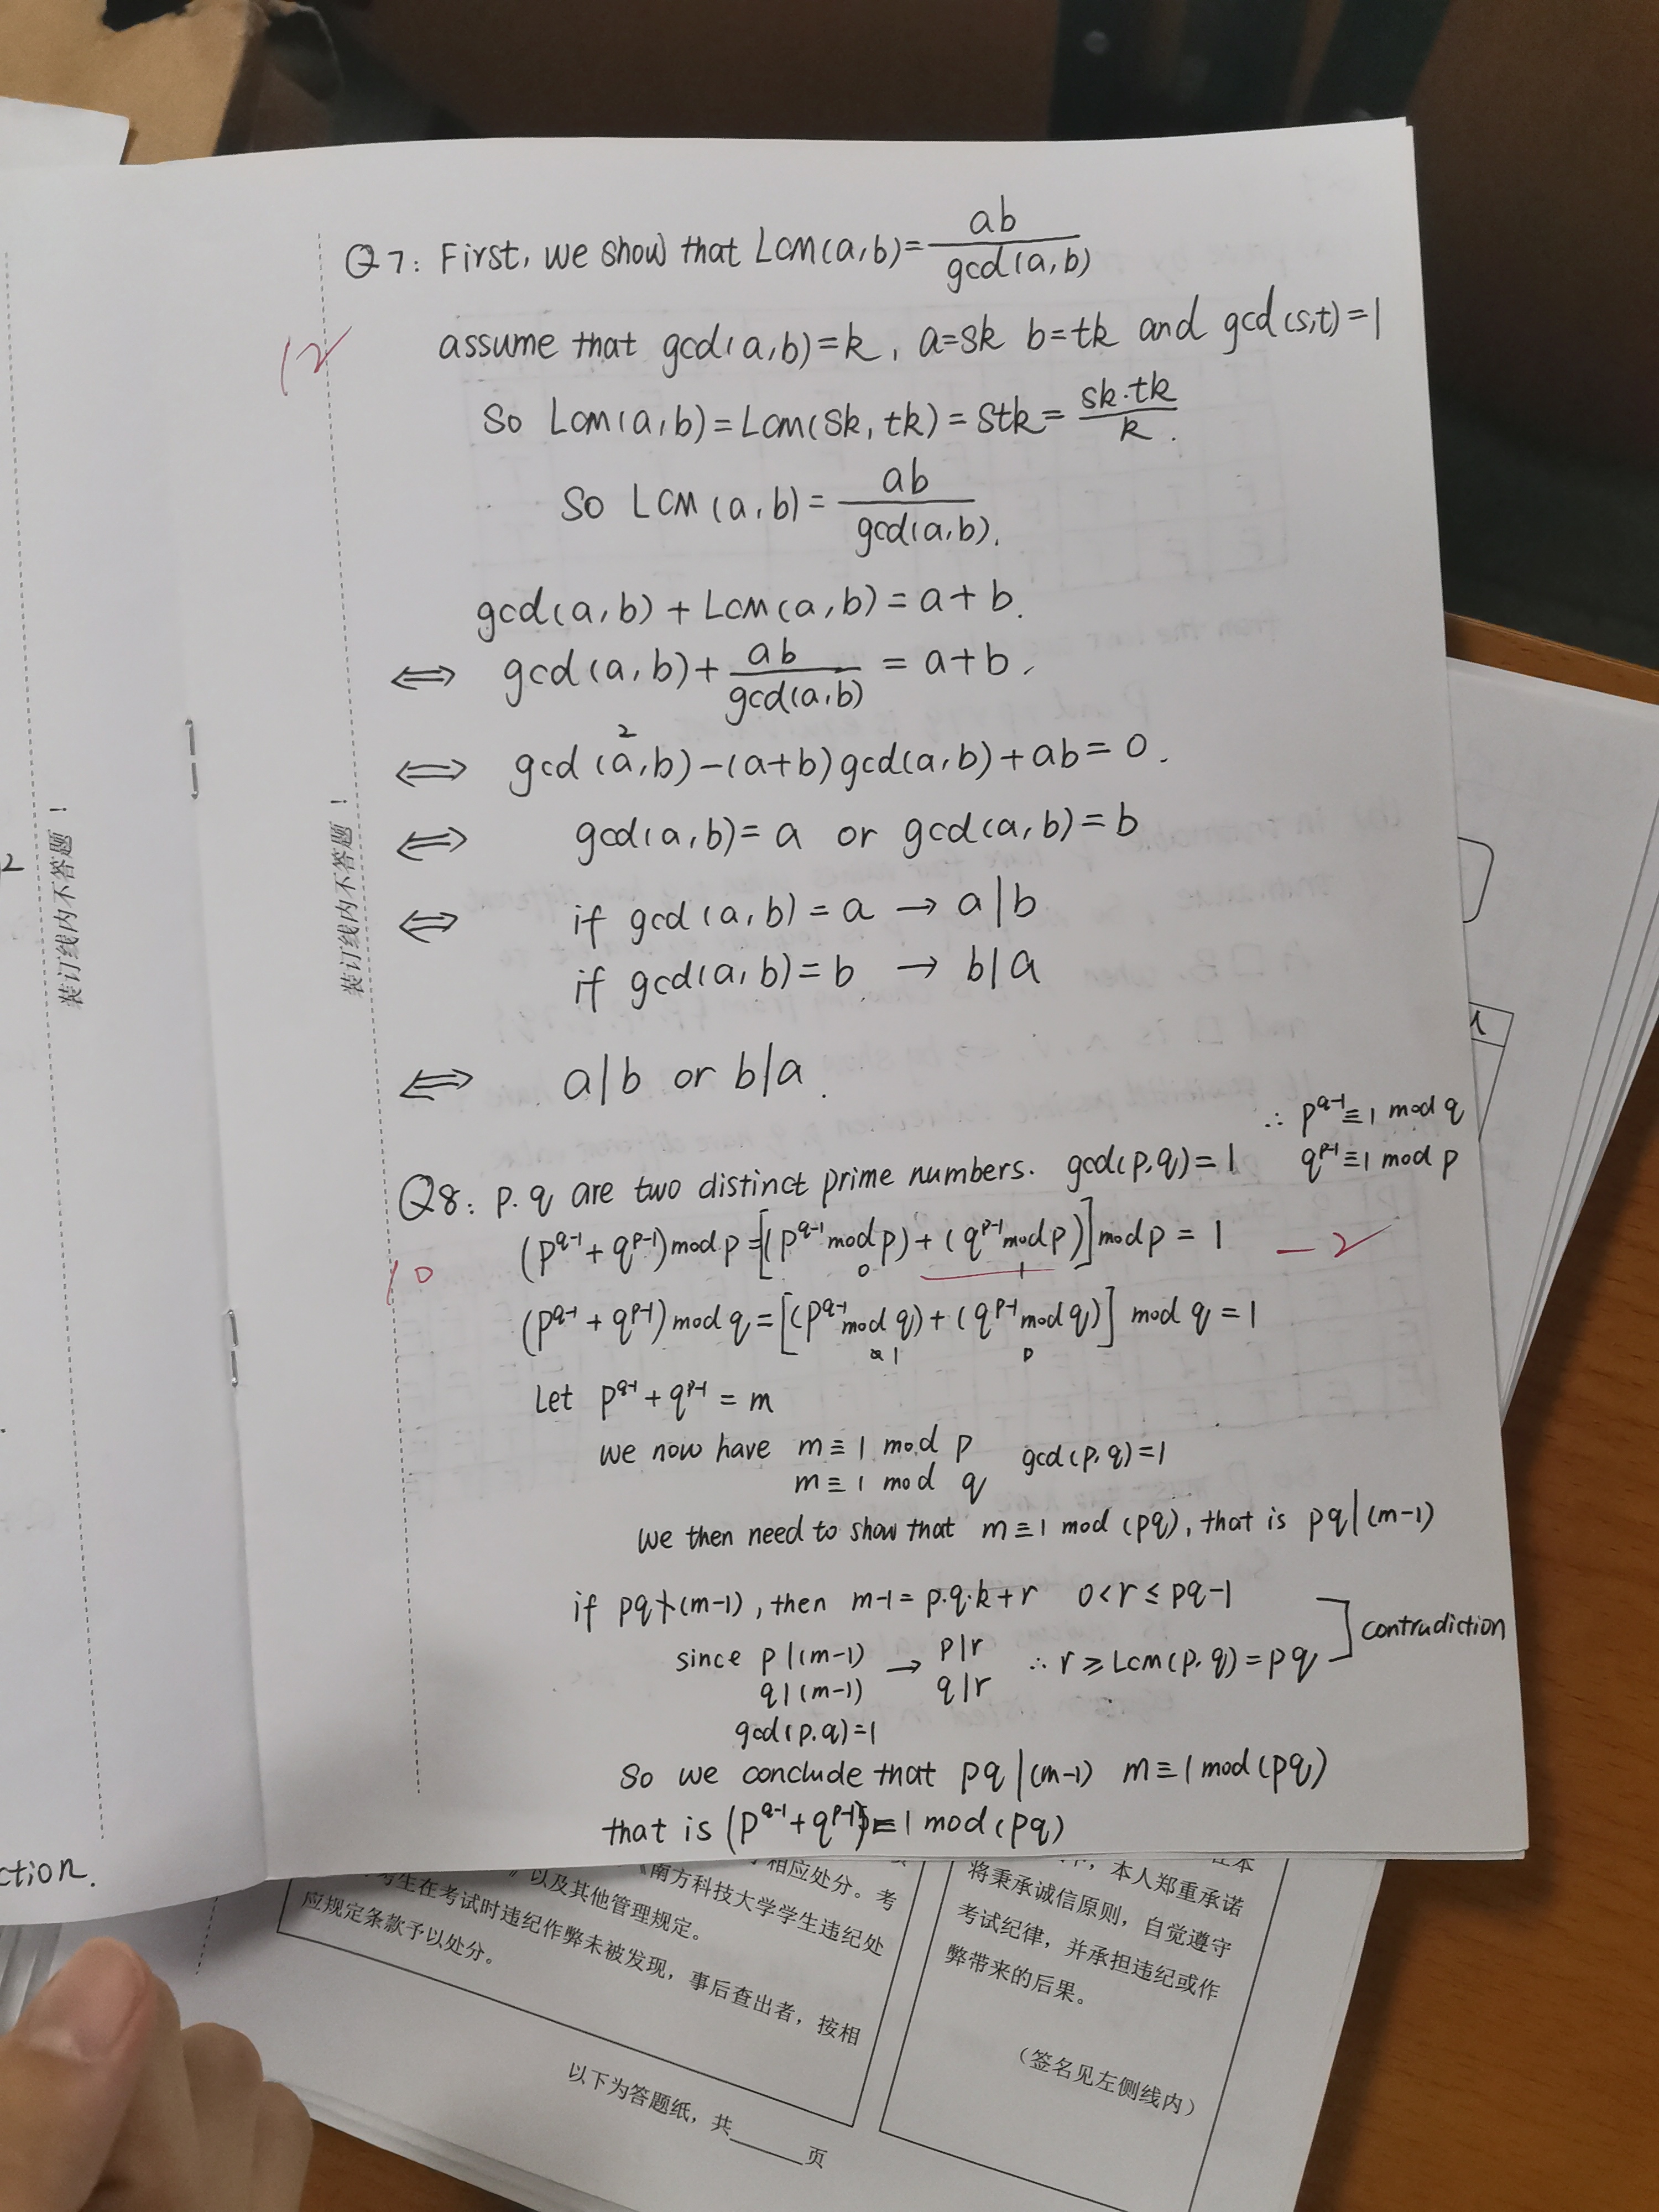 Q7: First, we show that Lcm(a,b)= ab / gcd(a,b)
12
assume that gcd(a,b)=k, a=sk b=tk and gcd(s,t)=1
So Lcm(a,b)=Lcm(sk,tk)=stk= sk·tk / k .
So Lcm(a,b)= ab / gcd(a,b).
gcd(a,b)+Lcm(a,b)=a+b.
⟺ gcd(a,b)+ ab / gcd(a,b) =a+b,
⟺ gcd²(a,b)-(a+b)gcd(a,b)+ab=0.
⟺ gcd(a,b)=a or gcd(a,b)=b
⟺ if gcd(a,b)=a → a|b
if gcd(a,b)=b → b|a
⟺ a|b or b|a.
Q8: p.q are two distinct prime numbers. gcd(p,q)=1 ∴ p^(q-1)≡1 mod q
q^(p-1)≡1 mod p
(p^(q-1)+q^(p-1))mod p=[(p^(q-1) mod p)+(q^(p-1) mod p)]mod p=1 -2
0 1
10
(p^(q-1)+q^(p-1))mod q=[(p^(q-1) mod q)+(q^(p-1) mod q)] mod q=1
1 0
Let p^(q-1)+q^(p-1)=m
we now have m≡1 mod p gcd(p,q)=1
m≡1 mod q
we then need to show that m≡1 mod (pq), that is pq|(m-1)
if pq∤(m-1), then m-1=p.q.k+r 0<r≤pq-1
since p|(m-1) → p|r ∴ r≥Lcm(p,q)=pq contradiction
q|(m-1) q|r
gcd(p.q)=1
So we conclude that pq|(m-1) m≡1 mod(pq)
that is (p^(q-1)+q^(p-1))≡1 mod(pq)
装订线内不答题！
装订线内不答题！
2
ction.
相应处分。考
《南方科技大学学生违纪处
》以及其他管理规定。
考生在考试时违纪作弊未被发现，事后查出者，按相
应规定条款予以处分。
，本人郑重承诺
将秉承诚信原则，自觉遵守
考试纪律，并承担违纪或作
弊带来的后果。
（签名见左侧线内）
以下为答题纸，共____页